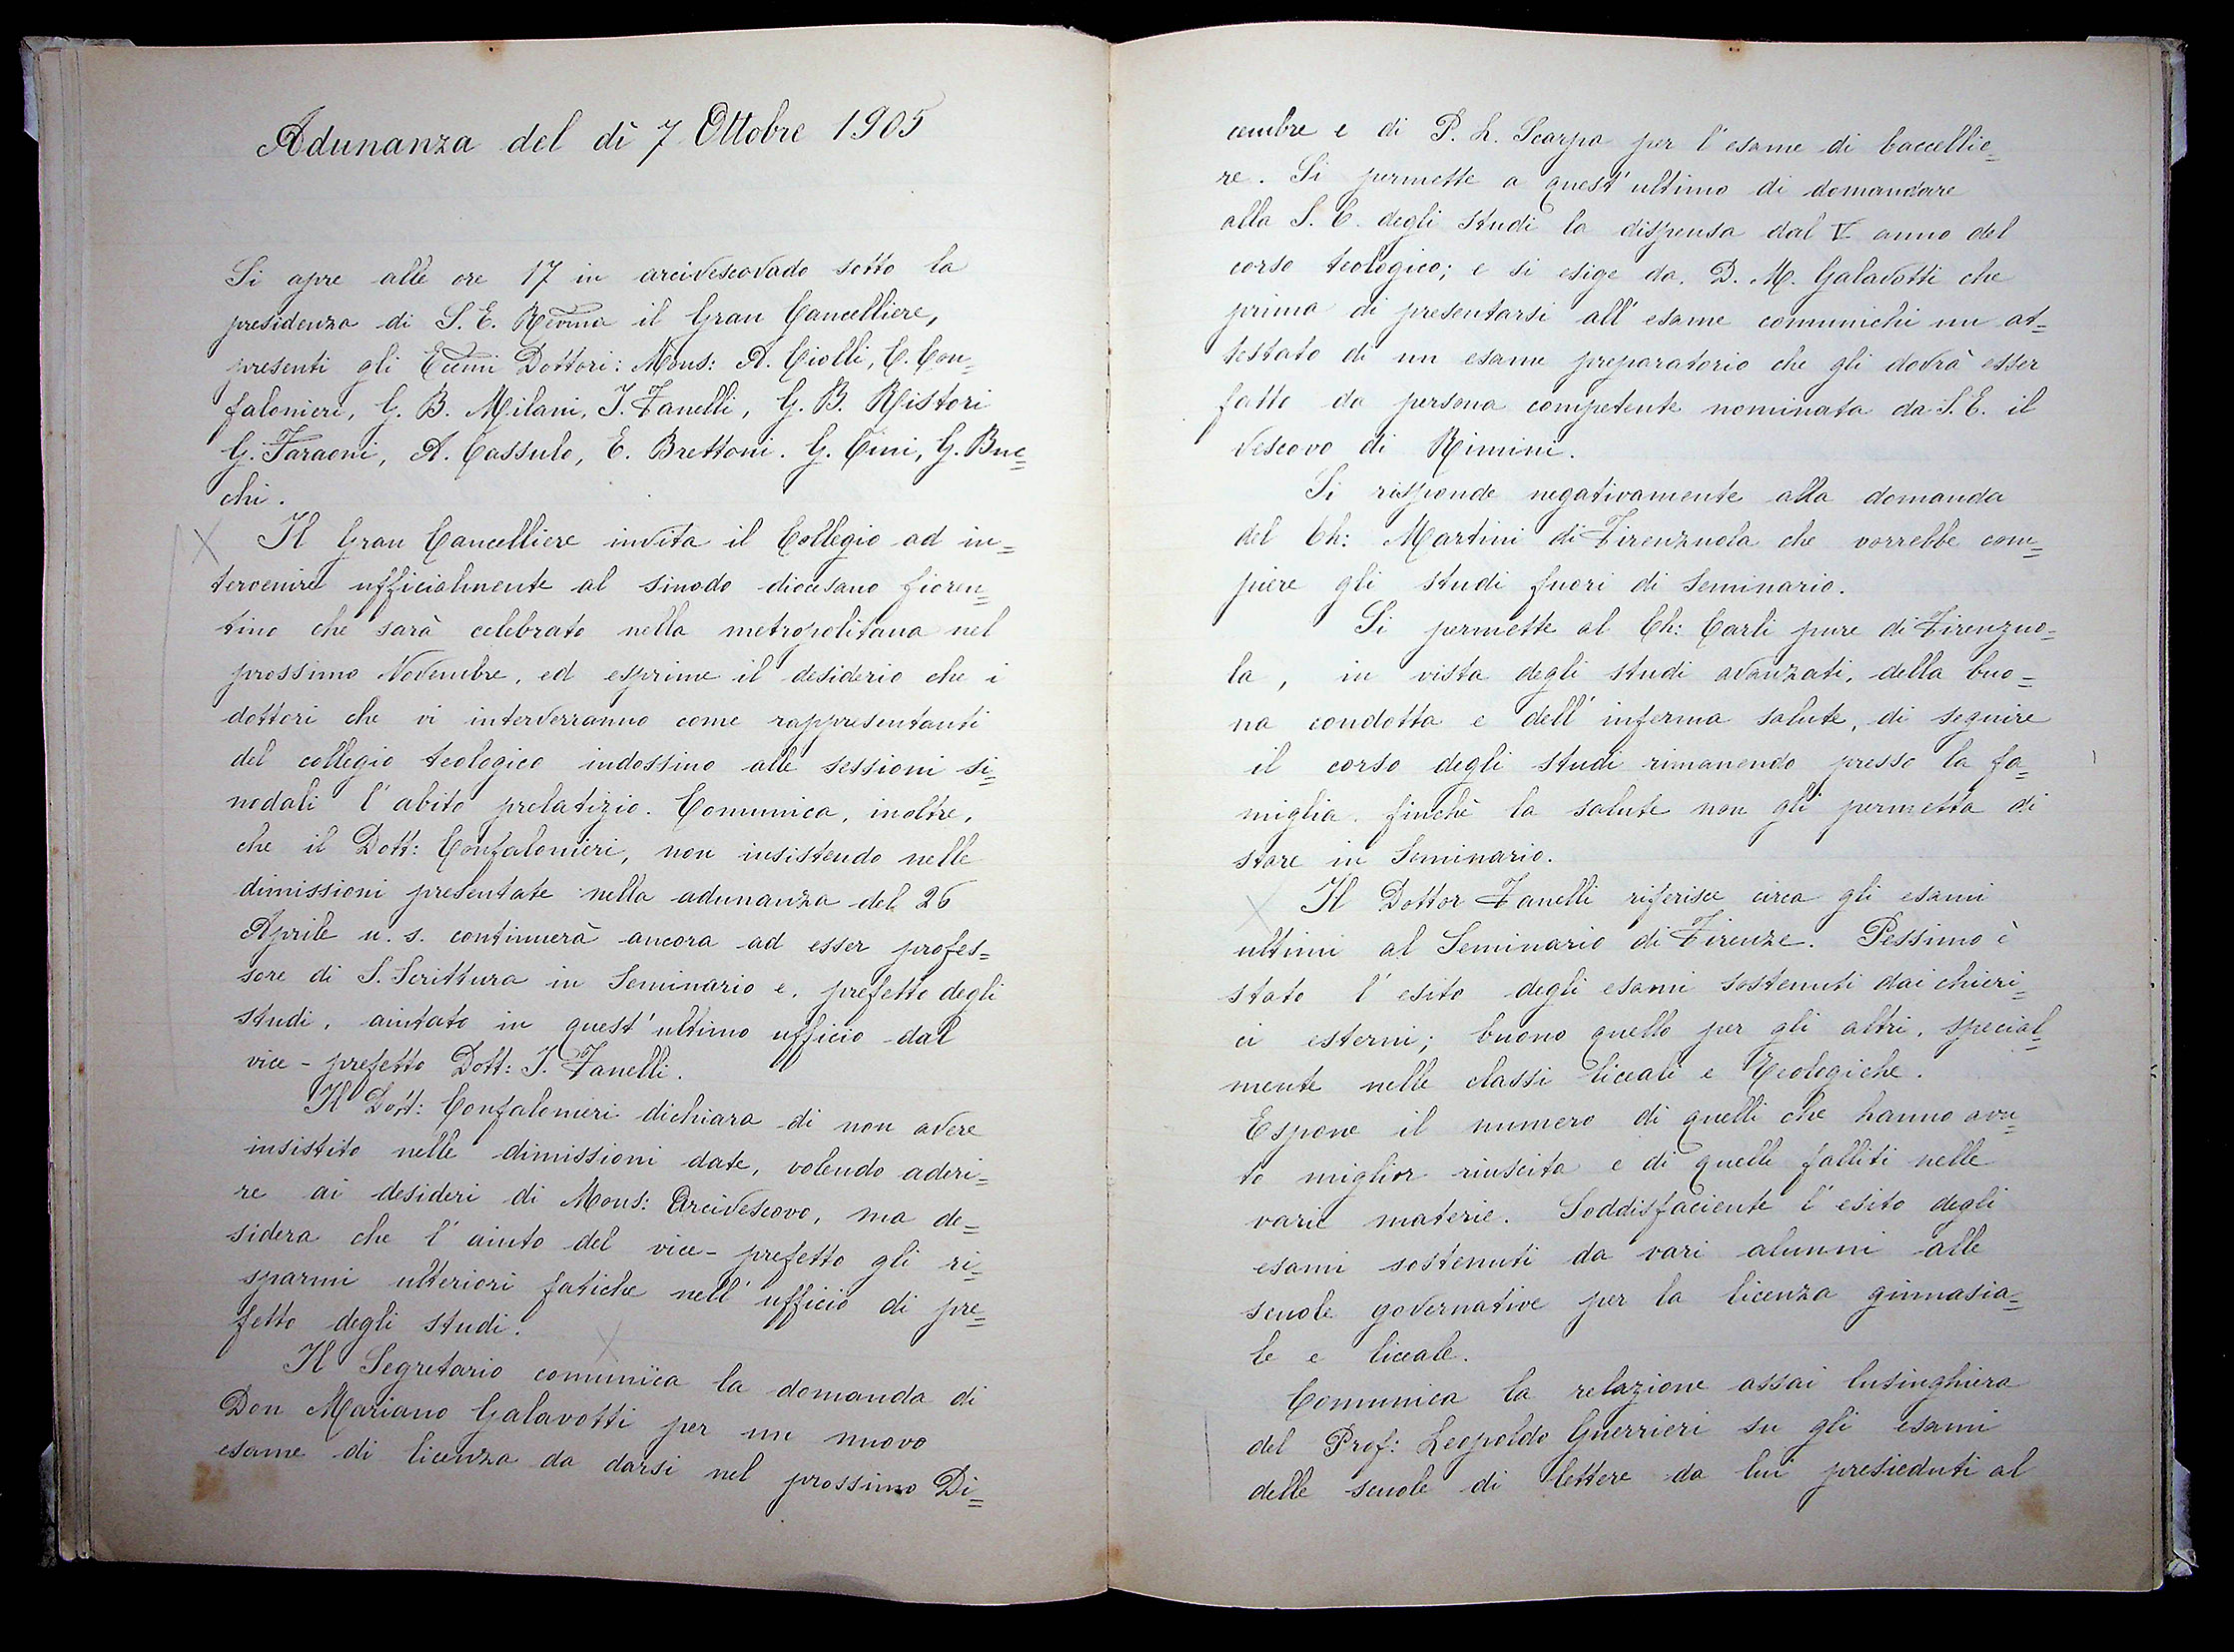 Adunanza del dì 7 Ottobre 1905
Si apre alle ore 17 in arcivescovado sotto la
presidenza di S. E. Revma il Gran Cancelliere,
presenti gli Eccmi Dottori: Mons: A. Ciolli, C. Con=
falonieri, G. B. Milani, I. Fanelli, G. B. Ristori
G. Faraoni, A. Cassulo, E. Brettoni. G. Cini, G. Buc=
chi.
Il Gran Cancelliere invita il Collegio ad in=
tervenire ufficialmente al sinodo diocesano fioren=
tino che sarà celebrato nella metropolitana nel
prossimo Novembre, ed esprime il desiderio che i
dottori che vi interverranno come rappresentanti
del collegio teologico indossino alle sessioni si=
nodali l'abito prelatizio. Comunica, inoltre,
che il Dott: Confalonieri, non insistendo nelle
dimissioni presentate nella adunanza del 26
Aprile u. s. continuerà ancora ad esser profes=
sore di S. Scrittura in Seminario e, prefetto degli
studi, aiutato in quest'ultimo ufficio dal
vice-prefetto Dott: I. Fanelli.
Il Dott: Confalonieri dichiara di non avere
insistito nelle dimissioni date, volendo aderi=
re ai desideri di Mons: Arcivescovo, ma de=
sidera che l'aiuto del vice-prefetto gli ri=
sparmi ulteriori fatiche nell'ufficio di pre=
fetto degli studi.
Il Segretario comunica la domanda di
Don Mariano Galavotti per un nuovo
esame di licenza da darsi nel prossimo Di=
cembre e di P. L. Scarpa per l'esame di baccellie=
re. Si permette a quest'ultimo di domandare
alla S. C. degli Studi la dispensa dal V anno del
corso teologico; e si esige da D. M. Galavotti che
prima di presentarsi all'esame comunichi un at=
testato di un esame preparatorio che gli dovrà esser
fatto da persona competente nominata da S. E. il
Vescovo di Rimini.
Si risponde negativamente alla domanda
del Ch: Martini di Firenzuola che vorrebbe com=
piere gli studi fuori di Seminario.
Si permette al Ch: Carli pure di Firenzuo=
la, in vista degli studi avanzati, della buo=
na condotta e dell'inferma salute, di seguire
il corso degli studi rimanendo presso la fa=
miglia. finchè la salute non gli permetta di
stare in Seminario.
Il Dottor Fanelli riferisce circa gli esami
ultimi al Seminario di Firenze. Pessimo è
stato l'esito degli esami sostenuti dai chieri=
ci esterni; buono quello per gli altri, special=
mente nelle classi liceali e Teologiche.
Espone il numero di quelli che hanno avu=
to miglior riuscita e di quelli falliti nelle
varie materie. Soddisfaciente l'esito degli
esami sostenuti da vari alunni alle
scuole governative per la licenza ginnasia=
le e liceale.
Comunica la relazione assai lusinghiera
del Prof: Leopoldo Guerrieri su gli esami
delle scuole di lettere da lui presieduti al